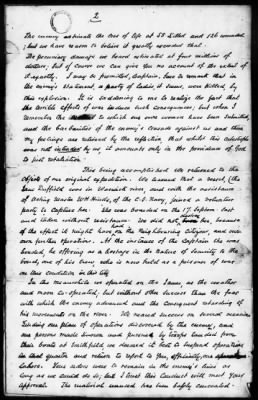 2
The enemy estimate the loss of life at 58 killed and 126 wounded
; but we have reason to believe it greatly exceeded that.
The pecuniary damage we heard estimated at four millions of
dollars, but of course we can give you no account of the extent of
it exactly. I may be permitted, Captain, here to remark that in
the enemy's statement, a party of ladies, it seems, were killed by
this explosion. It is saddening to me to realize the fact that
the terrible effects of war induce such consequences; but when I
remember the to which our own women have been submitted,
and the barbarities of the enemy's crusade against us and them
my feelings are relieved by the reflection that whilst this catastrophe
was not intended by us, it amounts only in the providence of God
to just retaliation.
This being accomplished we returned to the
objects of our original expedition. We learned that a vessel, (the
Jane Duffield) was in Warwick river, and with the assistance
of Acting Master W H Hinds, of the C.S. Navy, joined a volunteer
party to capture her. She was boarded on the 17 Septem last
and taken without resistance. We did not her, because
of the effect it might have had on the neighbouring citizens, and our
own further operations. At the instance of the Captain she was
bonded, he offering as a hostage in the nature of security to the
bond, one of his crew who is now held as a prisoner of war
on this condition in this city
In the meanwhile we operated on the James as the weather
and moon co-operated, but without other success than the fear
with which the enemy advanced and the consequent retarding of
his movements on the river. We neared success on several occasions
Finding our plans of operations discovered by the enemy, and
our persons made known and pursued by troops landed from
their boats at Smithfield we deemed it best to suspend operations
in that quarter and return to report to you, officially, our
labors. Your orders were to remain in the enemy's lines as
long as we could do so; but I trust this conduct will meet your
approval. The material unused has been safely concealed.